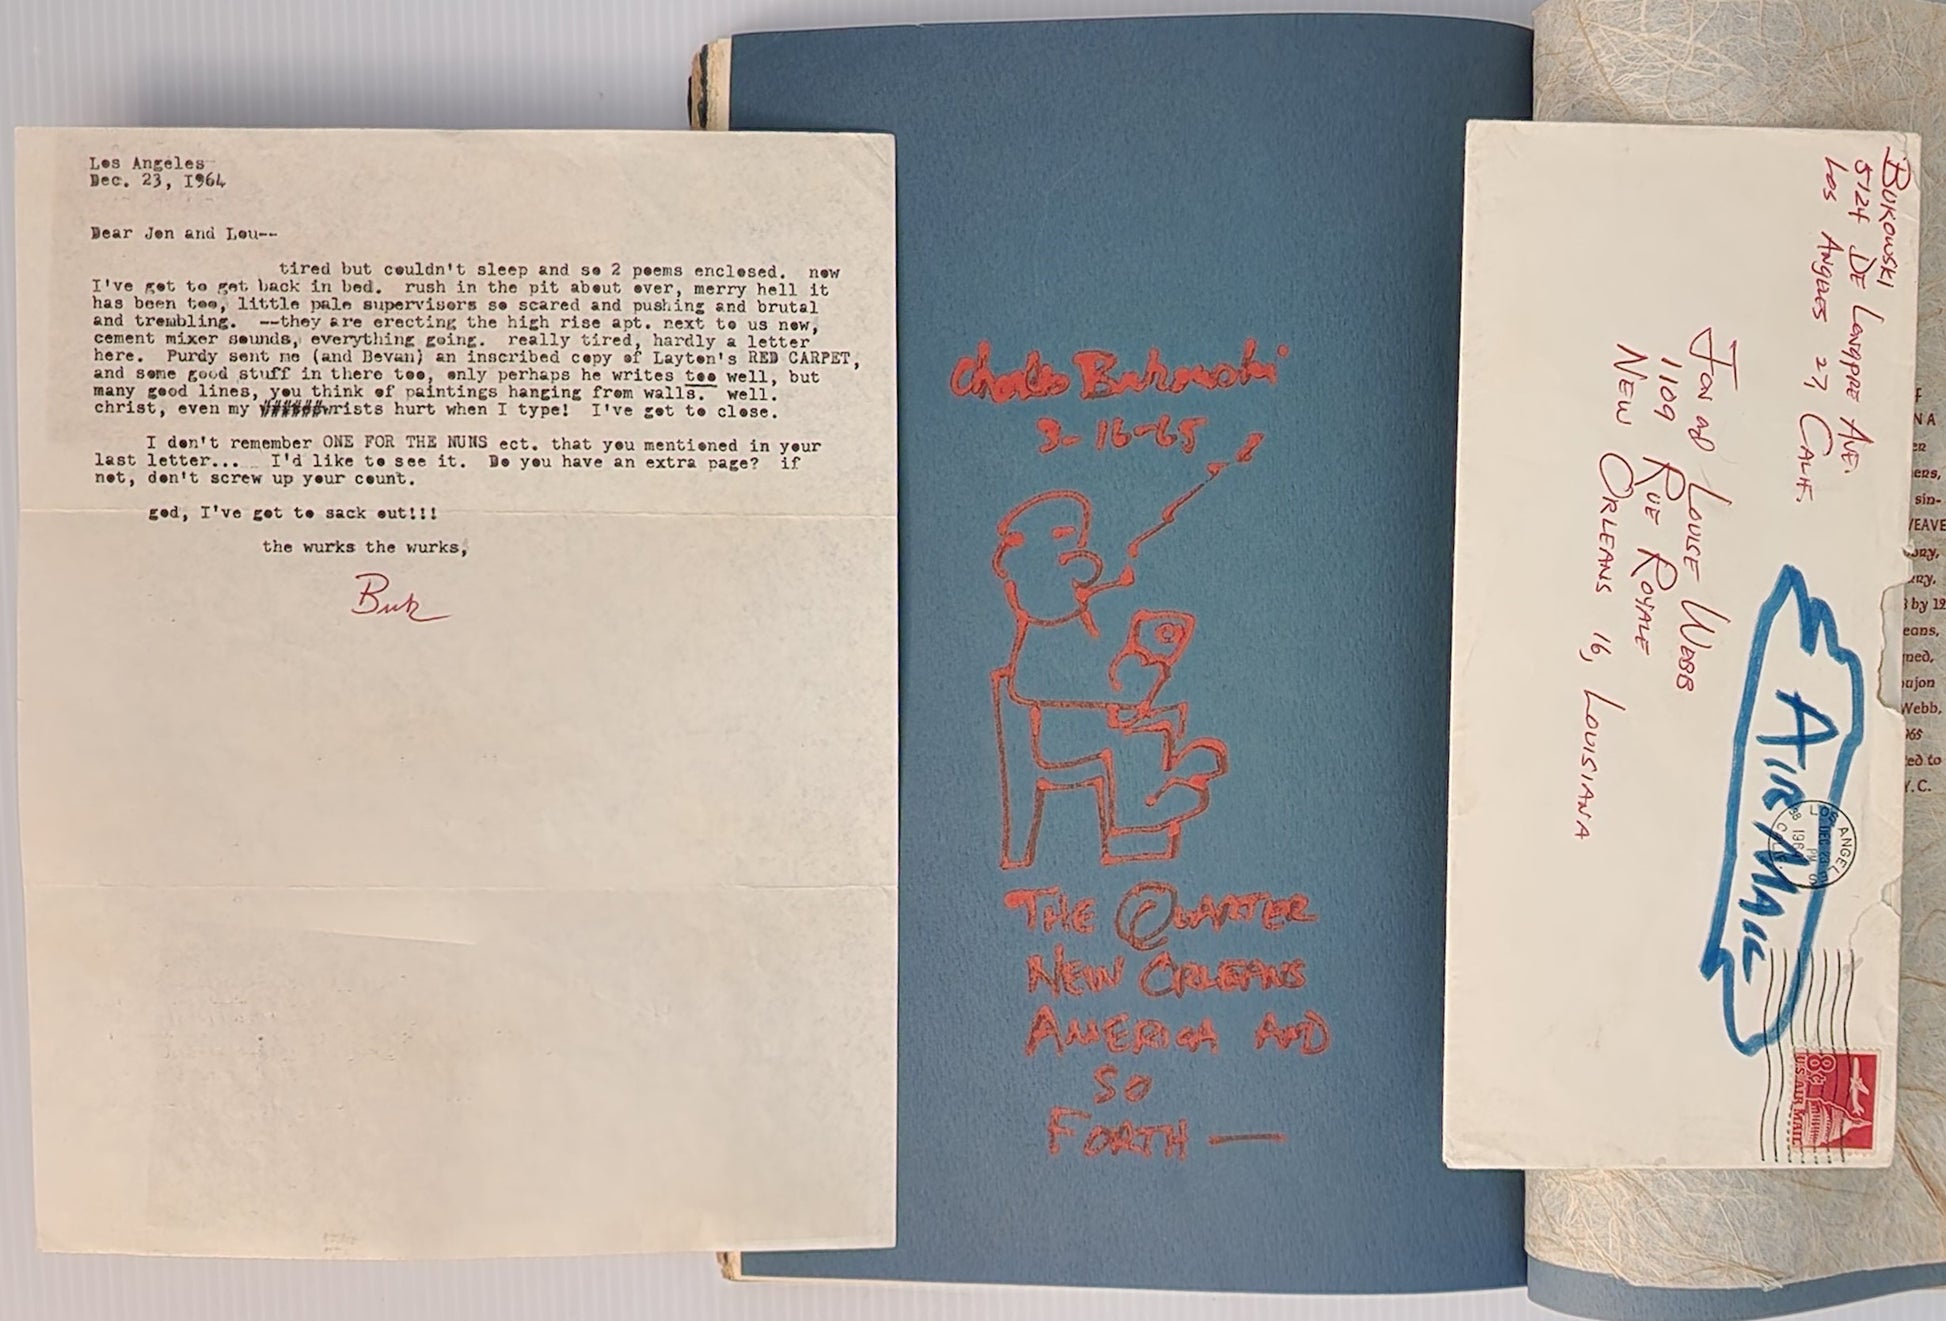 Los Angeles
Dec. 23, 1964
Dear Jon and Lou--
tired but couldn't sleep and so 2 poems enclosed. now
I've got to get back in bed. rush in the pit about over, merry hell it
has been too, little pale supervisors so scared and pushing and brutal
and trembling. --they are erecting the high rise apt. next to us now,
cement mixer sounds, everything going. really tired, hardly a letter
here. Purdy sent me (and Bevan) an inscribed copy of Layton's RED CARPET,
and some good stuff in there too, only perhaps he writes too well, but
many good lines, you think of paintings hanging from walls. well.
christ, even my ######wrists hurt when I type! I've got to close.
I don't remember ONE FOR THE NUNS ect. that you mentioned in your
last letter... I'd like to see it. Do you have an extra page? if
not, don't screw up your count.
god, I've got to sack out!!!
the wurks the wurks,
Buk
Charles Bukowski
3-16-65
THE QUARTER
NEW ORLEANS
AMERICA AND
SO
FORTH —
BUKOWSKI
5124 DE LONGPRE AVE.
LOS ANGELES 27 CALIF.
JON AND LOUISE WEBB
1109 RUE ROYALE
NEW ORLEANS 16, LOUISIANA
AIR MAIL
LOS ANGELES
DEC 23
PM
196
CALIF
8¢
U.S. AIR MAIL
NA
sin-
WEAVE
by 12
eans,
ned,
oujon
Webb,
965
ted to
Y.C.